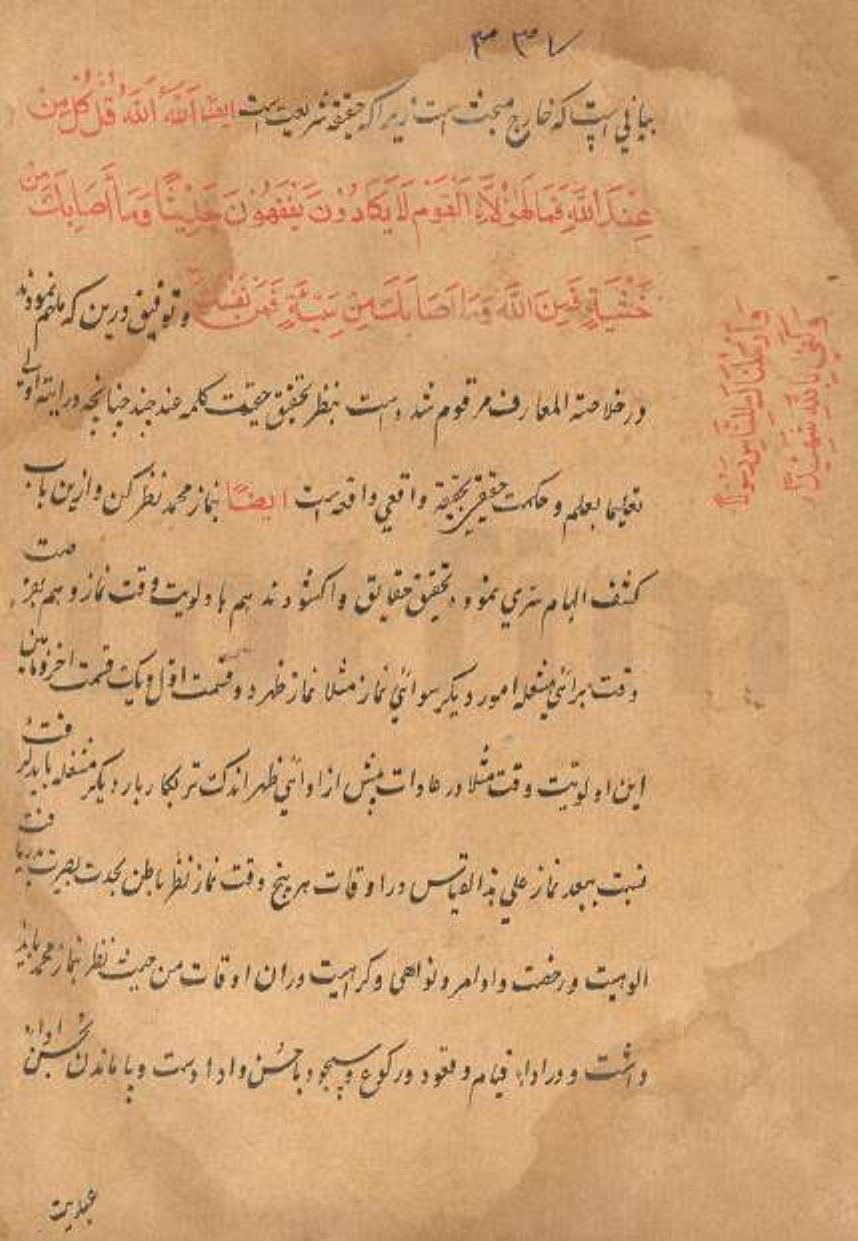 ۴۳۷
بیانی است که خارج مبحث است زیرا که حقیقة شریعت است ایضا الله الله قُل كُلٌّ مِن
عِنْدَ اللَّهِ فَمَالِ هَؤُلَاءِ الْقَوْمِ لَا يَكَادُونَ يَفْقَهُونَ حَدِيثًا وَمَا أَصَابَكَ مِن
حَسَنَةٍ فَمِنَ اللَّهِ وَمَا أَصَابَكَ مِن سَيِّئَةٍ فَمِن نَفْسِكَ و توفیق درین که ملهم نمودند
وَأَرْسَلْنَاكَ لِلنَّاسِ رَسُولًا
وَكَفَىٰ بِاللَّهِ شَهِيدًا
در خلاصته المعارف مرقوم شده است بنظر تحقیق حقیقت کلمه عند چند چنانچه در اینه اولی
تعلیما بعلم و حکمت حقیقی بحقیقة واقعی واقعه است ایضًا بنماز محمد نظر کن و ازین باب
کشف الهام سری نمود و تحقیق حقایق واکشودند هم باولویت وقت نماز و هم
وقت برائی مشغله امور دیگر سوائی نماز مثلا نماز ظهر دو قسمت اول و یک قسمت اخر و مابین
این اولویّت وقت مثلا در عادات پیش از ادائی ظهر اندک تر بکار بار دیگر مشغله باید گرفت
نسبت ببعد نماز علی هذا القیاس در اوقات هر پنج وقت نماز نظر باطن بحدت بصیرت
الوهیت و رخصت و اوامر و نواهی و کراهیت دران اوقات من حیث نظر بنماز محمد باید
داشت و در اداء قیام و قعود و رکوع و سجود با حُسن و ادا دست و پا ماندن بحسن اداء
عبدیت